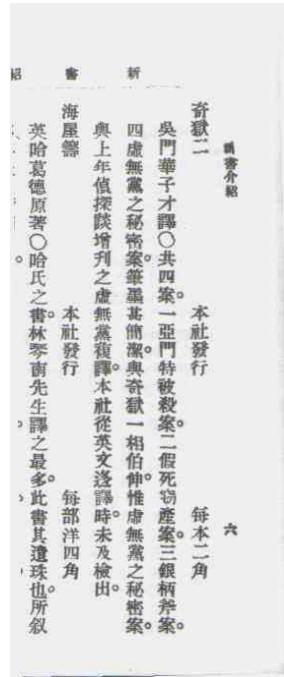 新書介紹
六
奇獄二 本社發行 每本二角
吳門華子才譯〇共四案一亞門特被殺案。二假死竊產案。三銀柄斧案。
四虛無黨之秘密案。筆墨甚簡潔。與奇獄一相伯仲惟虛無黨之秘密案。
與上年偵探談增刊之虛無黨複譯。本社從英文迻譯時。未及檢出。
海屋籌 本社發行 每部洋四角
英哈葛德原著〇哈氏之書。林琴南先生譯之最多。此書其遺珠也。所叙
新書